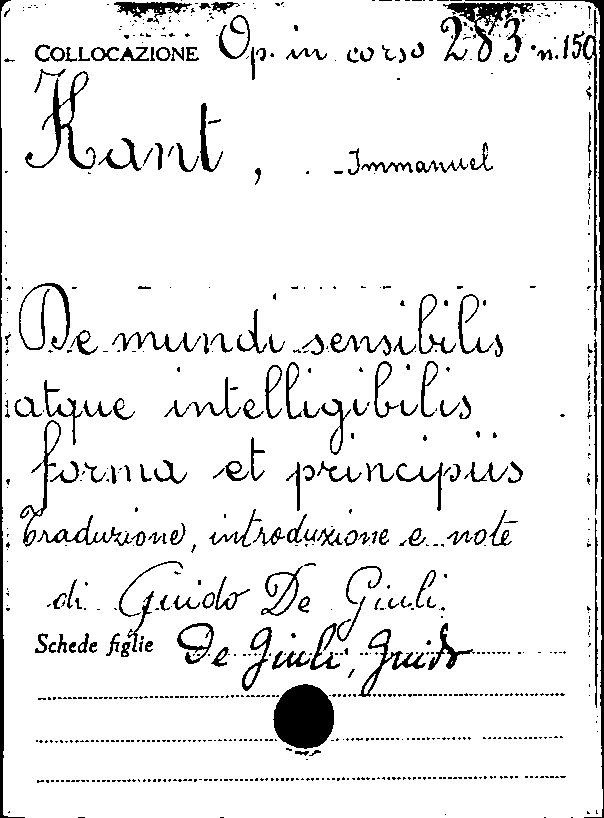 COLLOCAZIONE Op. in corso 283 n. 150
Kant, Immanuel
De mundi sensibilis
atque intelligibilis
forma et principiis
Traduzione, introduzione e note
di Guido De Giuli.
Schede figlie De Giuli, Guido